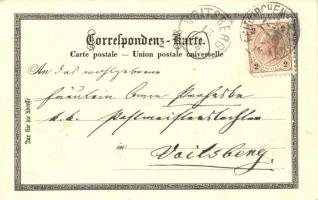 Correspondenz-Karte.
Carte postale — Union postale universelle
VOITSBERG
2 2
Nur für die Adresse
An das wohlgeborene
Fräulein
k.k. Postmeisterstochter
in
Voitsberg